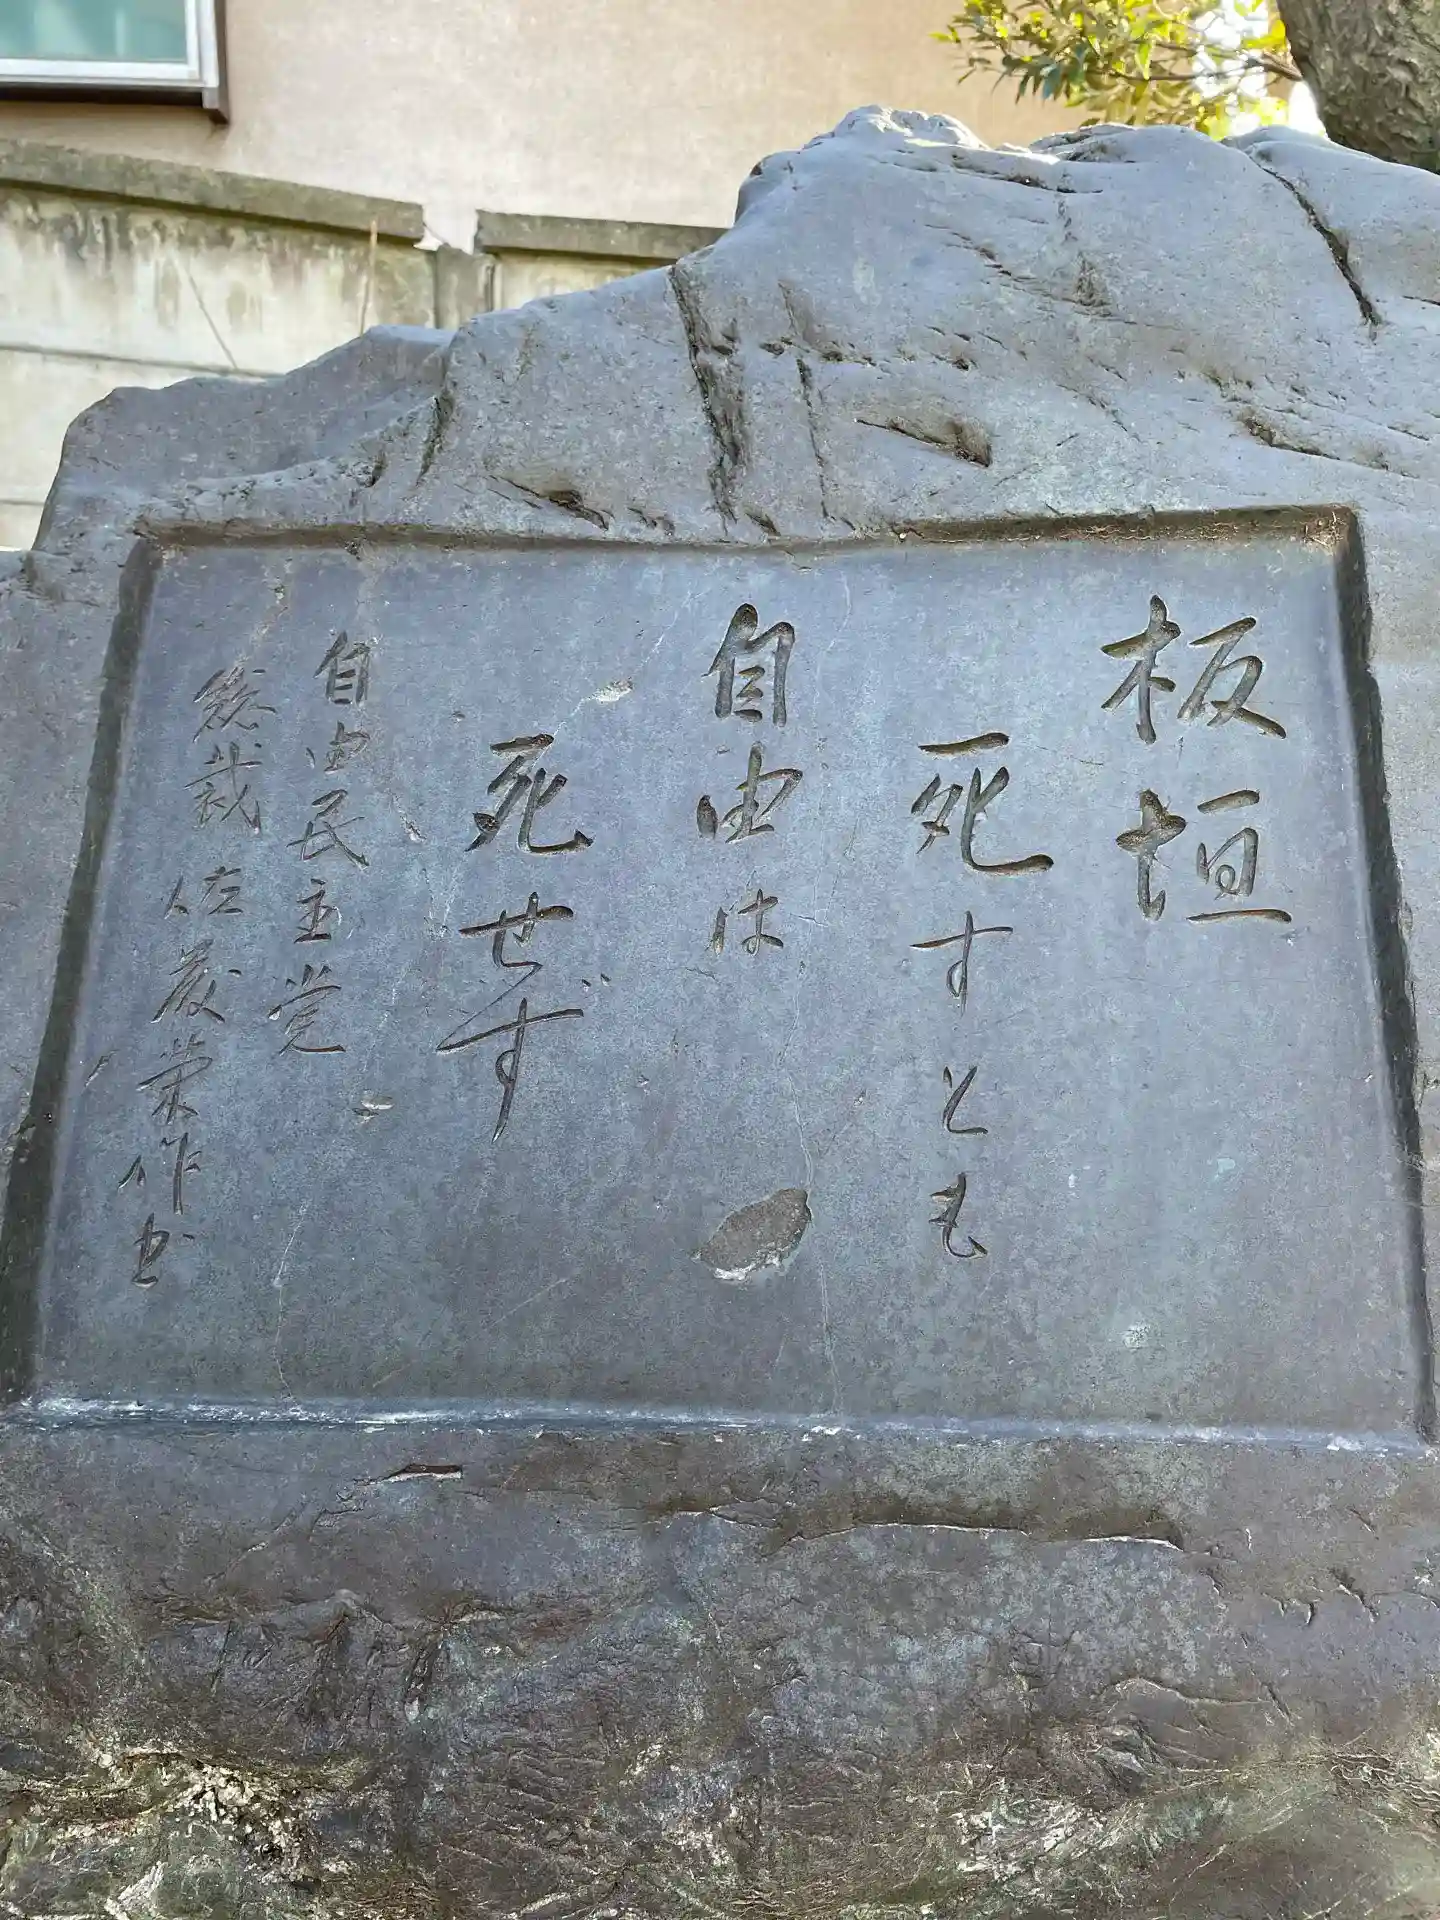 板垣
死すとも
自由は
死せず
自由民主党
総裁 佐藤榮作書